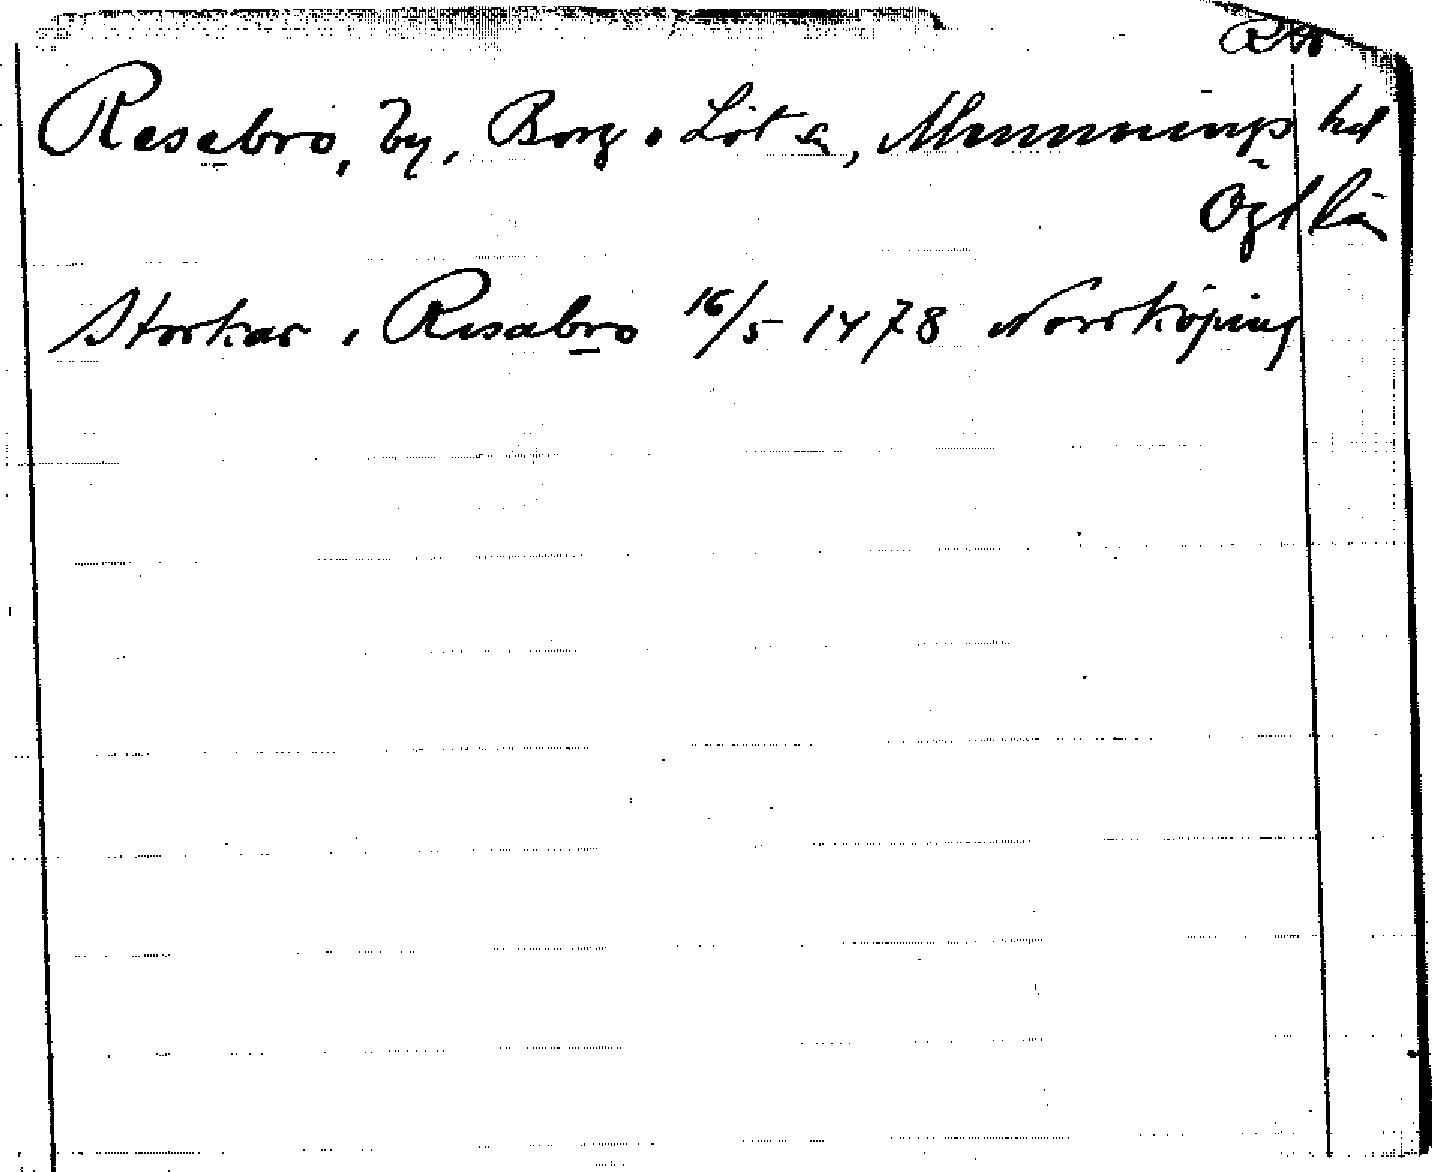 Resebro, by, Borg o Löt sn, Memmings hd
Ögl län
Storkar i Resabro 16/5 1478 Norrköping